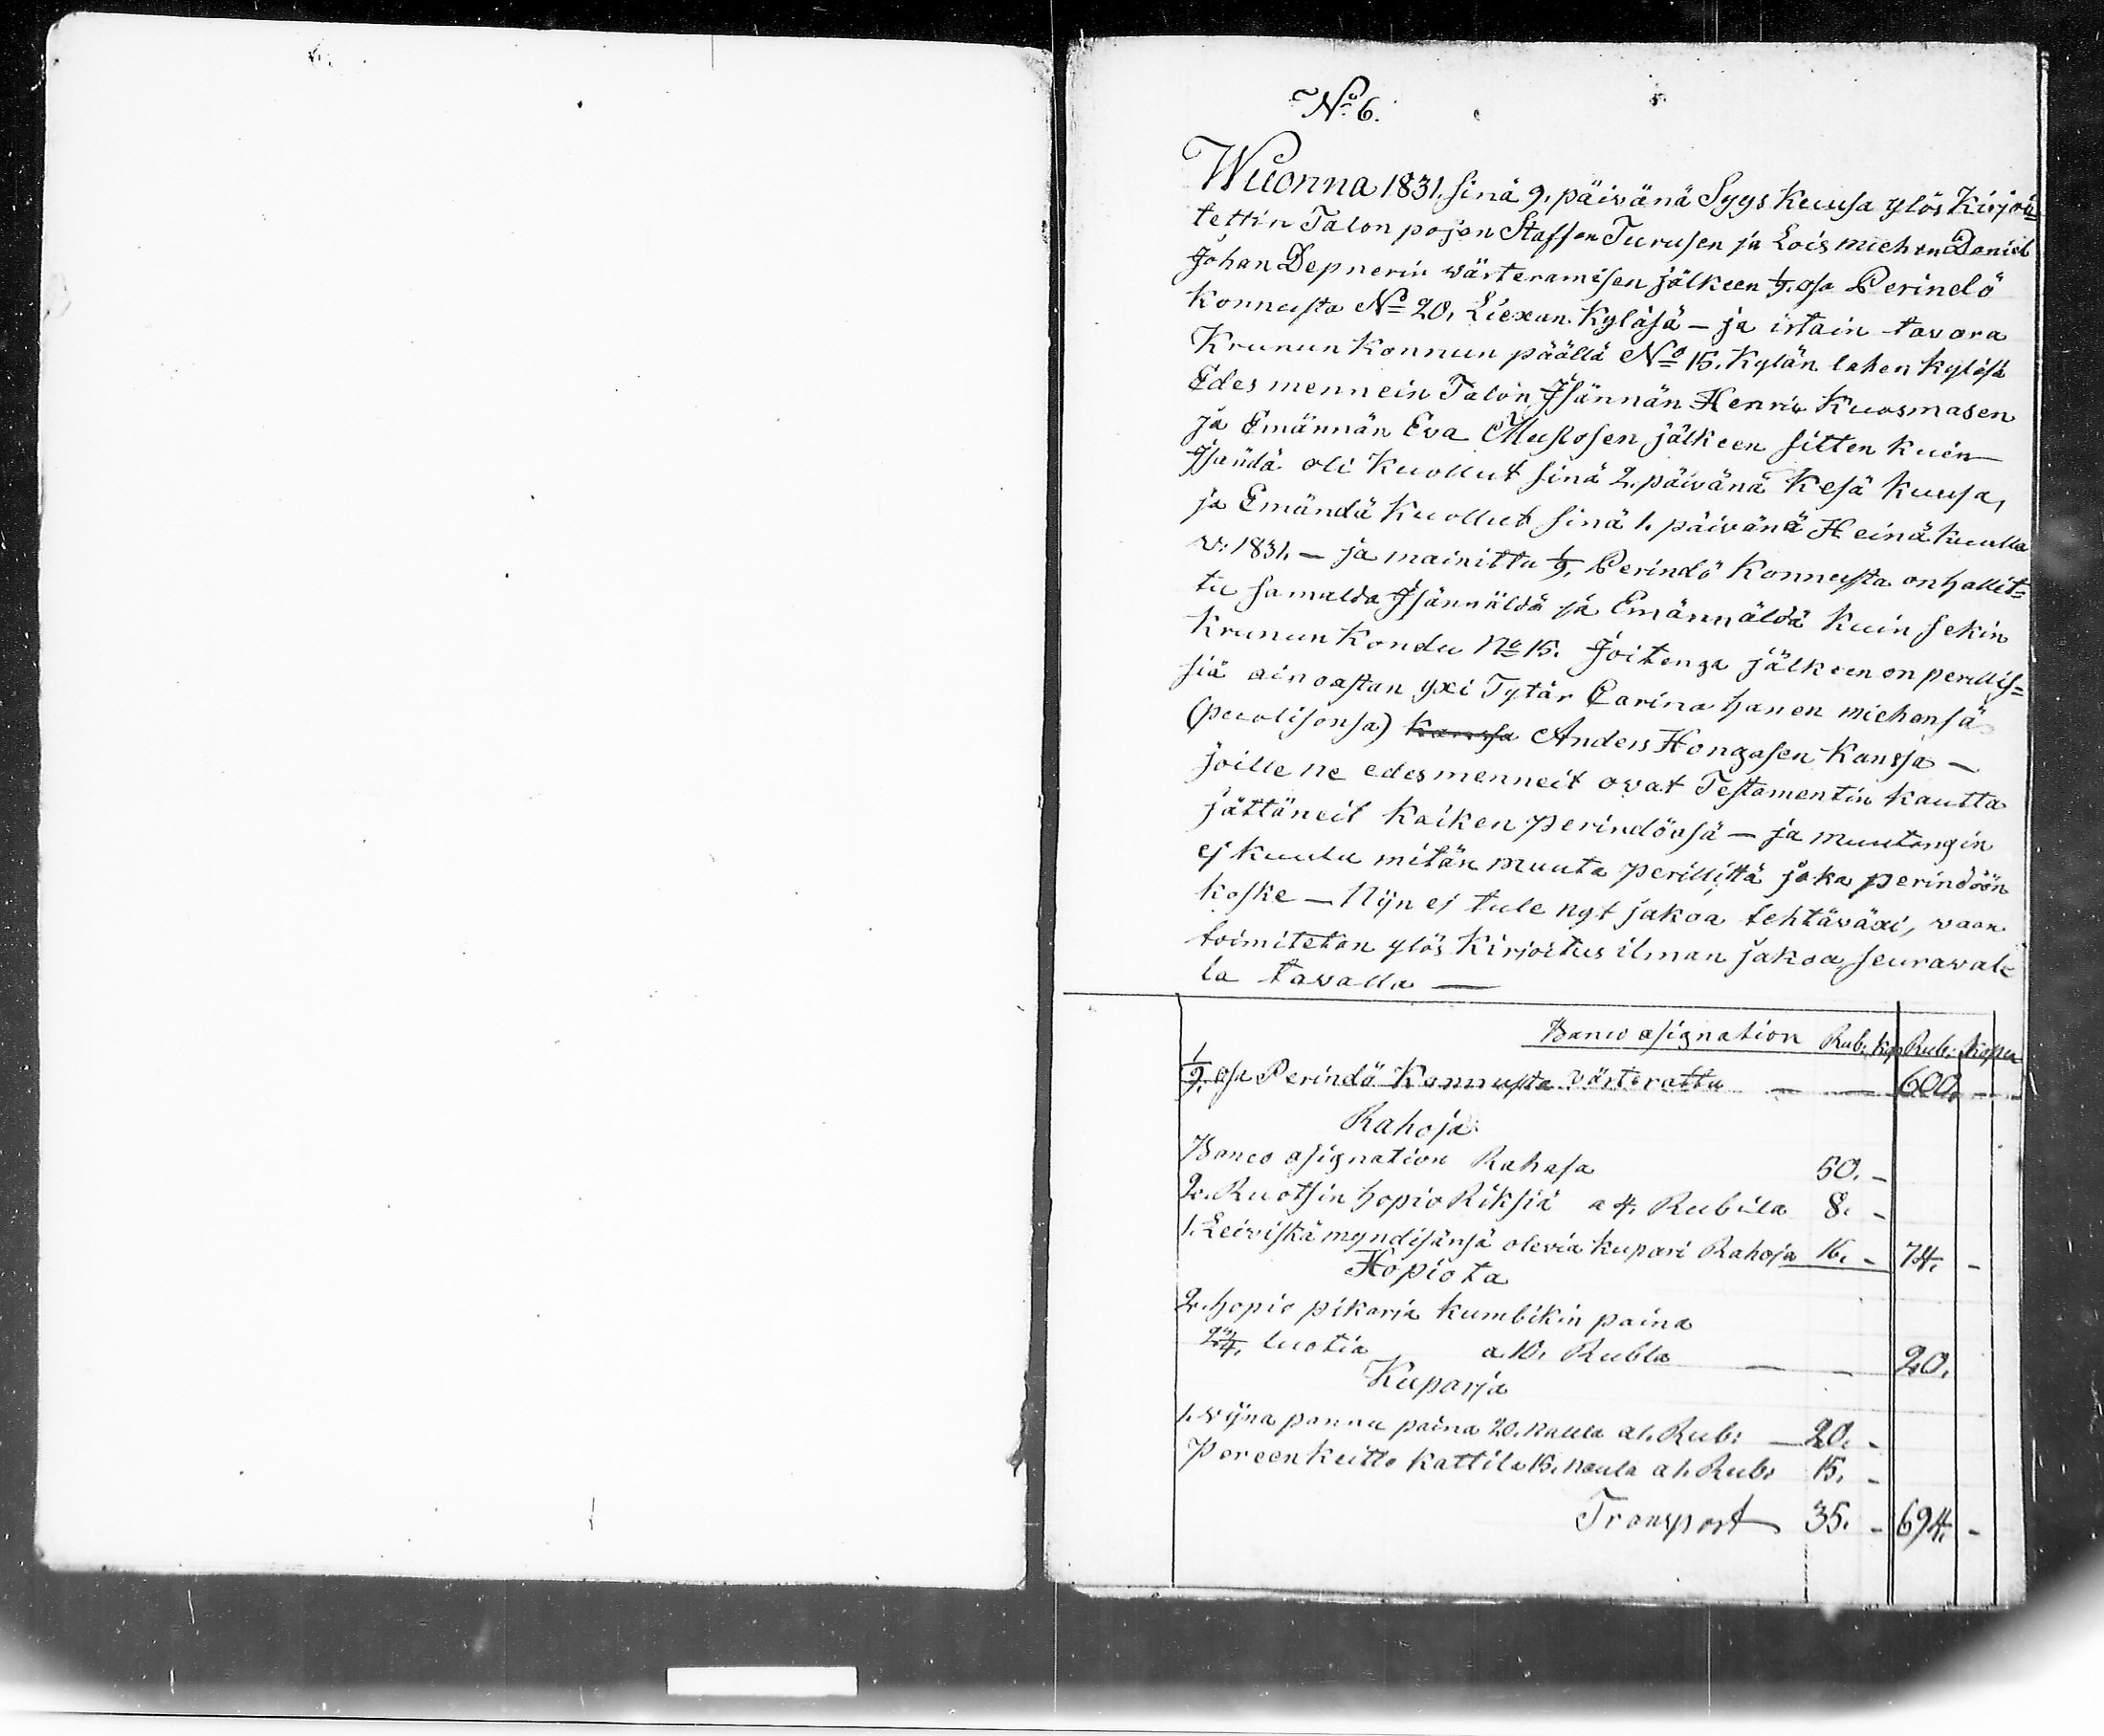 No 6.
Wuonna 1831. sinä 9. päivänä Syys Kuusa ylös Kirjoi=
tettin Talon pojan Staffan Turusen ja Lois miehen Daniel
Johan Depnerin wärteramisen jälkeen 1/9. osa Perindö
Konnusta No 20, Liexan Kyläsä — ja irtain tavara
Krunun Konnun päällä No 15. Kylän lahen Kyläsä
Edes mennein Talon Isännän Henric Kuosmasen
ja Emännän Eva Mustosen jälkeen sitten kuin
Isändä oli Kuollut sinä 2. päivänä Kesä Kuusa,
ja Emändä Kuollut sinä 1. päivänä Heinä Kuulla
v: 1831. — ja mainittu 1/9. Perindö Konnusta on hallit=
tu samalda Isännäldä ja Emännäldä kuin sekin
Krunun Kondu No 15. Joitenga jälkeen on perillis=
siä ainoastan yxi Tytär Carina hanen miehensä
(puolisonsa) Kanssa Anders Hongasen Kanssa —
joille ne edesmenneit ovat Testamentin kautta
jättäneit Kaiken perindönsä — ja muutongin
ej kuulu mitän muuta perillistä joka perindöön
koske — Nijn ej tule nyt jakoa tehtäväxi, vaan
toimitetan ylös Kirjoitus ilman jakoa seuraval=
la tavalla —
Banco asignation Rub: Kop Rub: Kopea
1/9. osa Perindö Konnusta värterattu — — 600. —
Rahoja
Banco asignation Rahasa 50. -
2. Ruotsin hopio Riksiä a 4. Rubila 8. -
1. Leiviskä myndisänsä olevia kupari Rahoja 16. - 74. -
Hopiota
2. hopio pikaria kumbikin paina
2 3/4. luotia a 10. Rubla — — 20.
Kuparja
1. vijna pannu paina 20. naula a 1. Rub: — 20. -
Poreen keitto kattila 15. naula a 1. Rub: 15. -
Transport 35. - 694. -